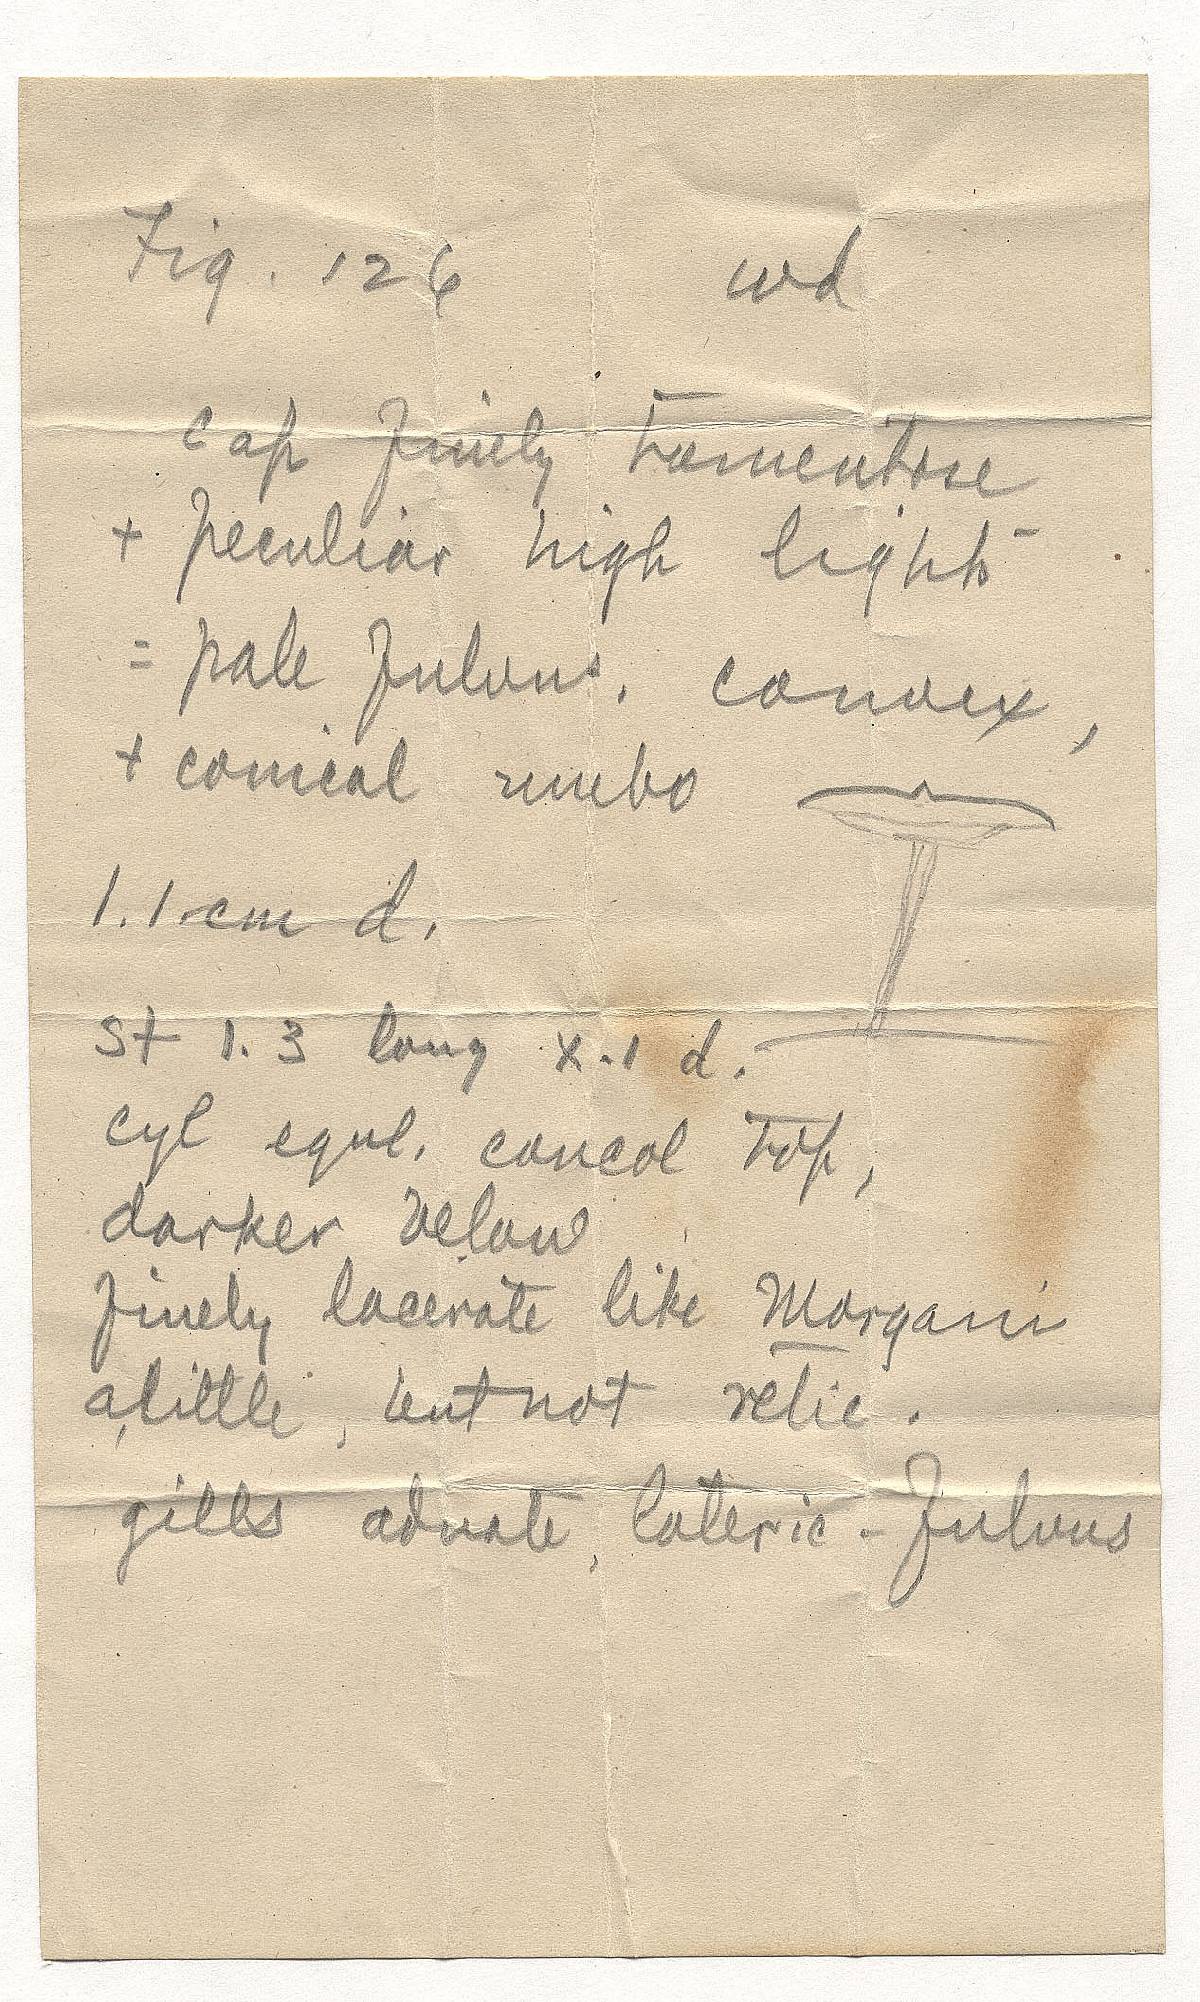 Fig. 126 wd
cap finely tomentose
+ peculiar high lights
= pale fulvous. convex,
+ conical umbo
1.1 cm d.
st 1.3 long x .1 d.
cyl equl. concol top,
darker below
finely lacerate like Morgani
a little, but not retic.
gills adnate, lateric - fulvous